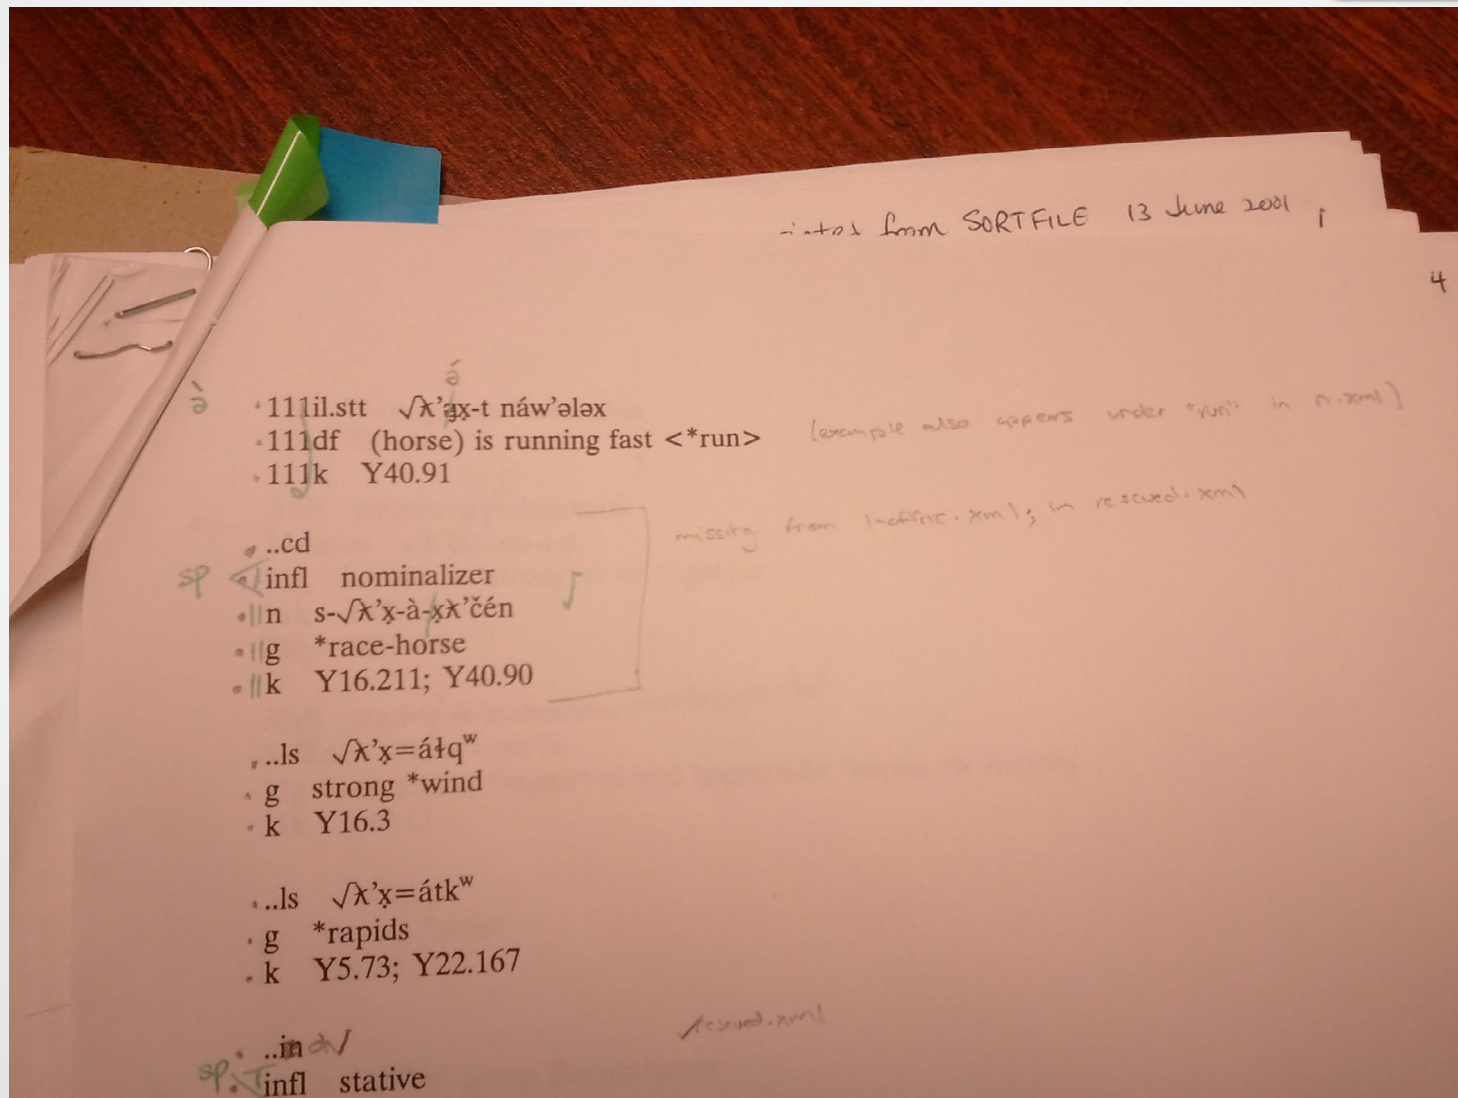 from SORTFILE 13 June 2001
4
ə́
ə̀ 111il.stt √ƛ’əx̣-t náw’ələx
111df (horse) is running fast <*run> (example also appears under "run" in n.xml)
111k Y40.91
missing from in rescued.xml
..cd
sp infl nominalizer
n s-√ƛ’x̣-à-x̣ƛ’čén
g *race-horse
k Y16.211; Y40.90
..ls √ƛ’x̣=áɬqʷ
g strong *wind
k Y16.3
..ls √ƛ’x̣=átkʷ
g *rapids
k Y5.73; Y22.167
rescued.xml
..in
sp infl stative